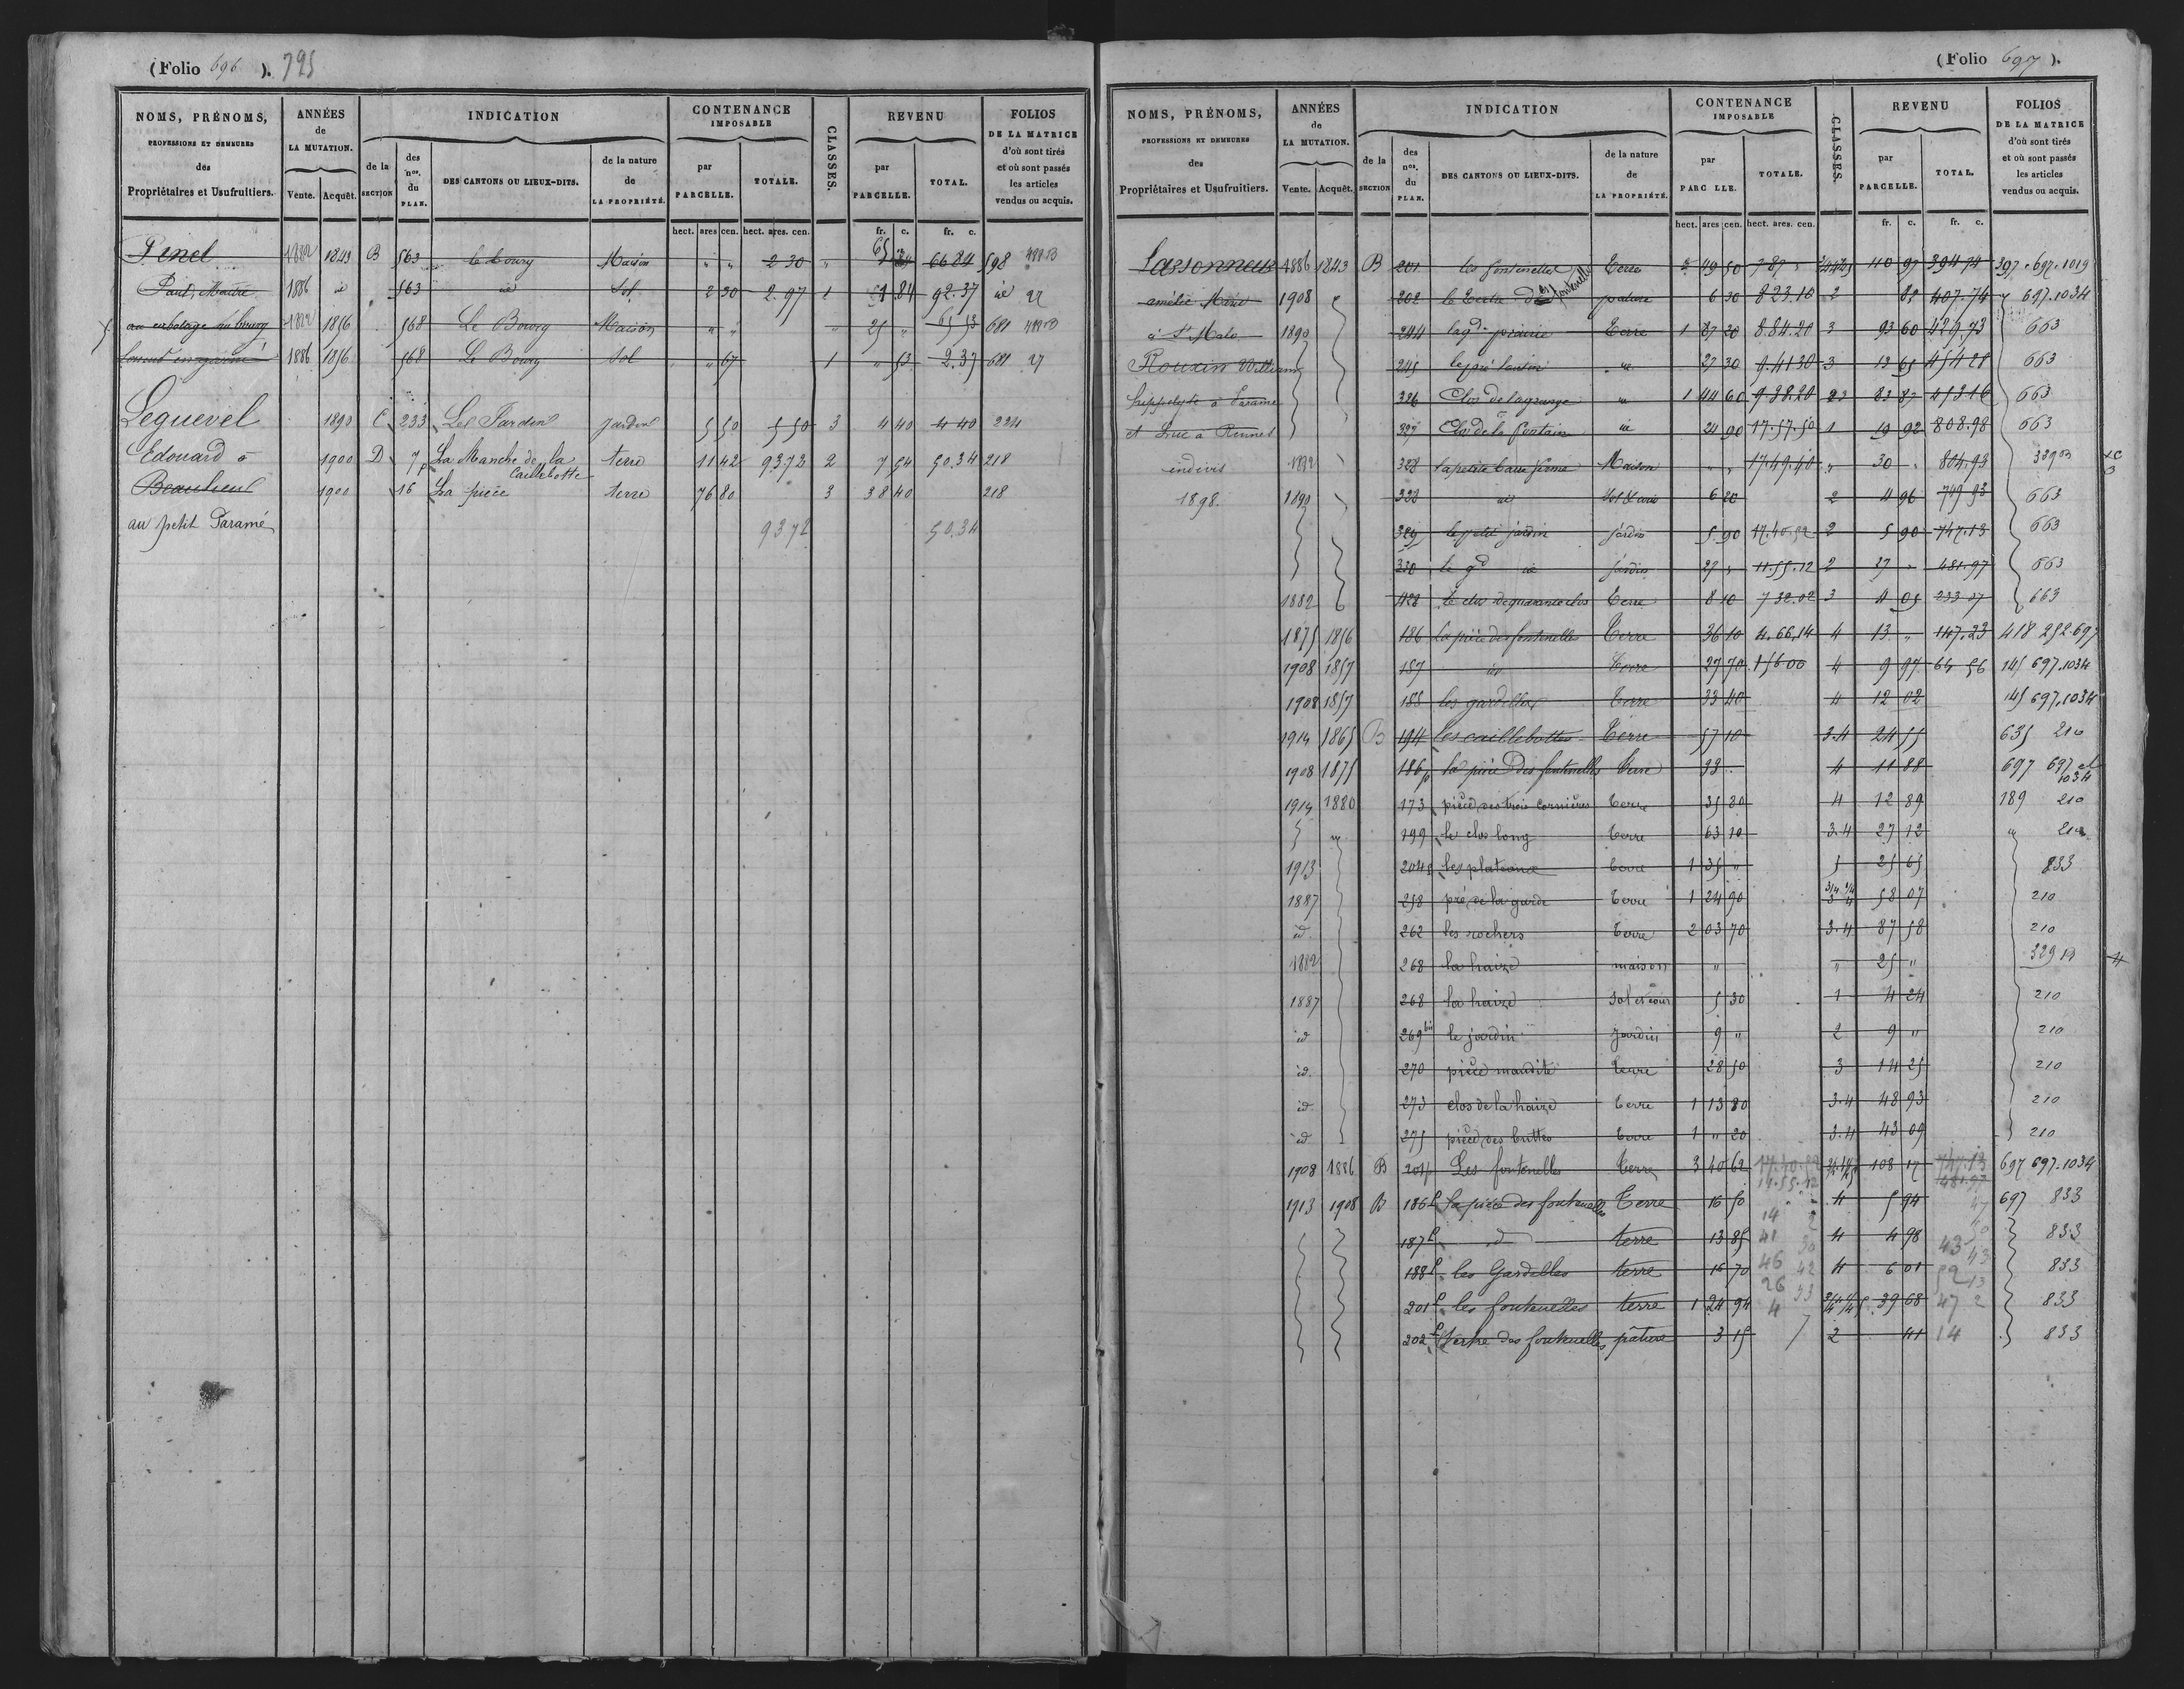 (Folio 696 ). 795
NOMS, PRÉNOMS, PROFESSIONS ET DEMEURES des Propriétaires et Usufruitiers.
ANNÉES de LA MUTATION. Vente. Acquêt.
INDICATION
de la SECTION
des nos. du PLAN.
DES CANTONS OU LIEUX-DITS.
de la nature de LA PROPRIÉTÉ.
CONTENANCE IMPOSABLE
par PARCELLE. TOTALE.
CLASSES.
REVENU
par PARCELLE. TOTAL.
FOLIOS DE LA MATRICE d'où sont tirés et où sont passés les articles vendus ou acquis.
hect. ares cen. hect. ares. cen. fr. c. fr. c.
Penel 1843 B 563 le bourg Maison " " 2 30 " 66 84 598
Paul, 1886 id 563 id Sol 2 30 2.97 1 1 84 92.37 id
1856 568 Le Bourg Maison " " " 25 " 681
1886 1856 568 Le Bourg Sol " 67 1 " 53 2.37 681
Leguevel 1890 C 233 Le Jardin jardin 5 50 5 50 3 4 40 4 40 224
Edouard à 1900 D 7p La Manche de la Caillebotte terre 11 42 93.72 2 7 54 50.34 218
Beaulieu 1900 16 La pièce terre 76 80 3 38 40 218
au petit Paramé 93.72 50.34
(Folio 697 ).
NOMS, PRÉNOMS, PROFESSIONS ET DEMEURES des Propriétaires et Usufruitiers.
ANNÉES de LA MUTATION. Vente. Acquêt.
INDICATION
de la SECTION
des nos. du PLAN.
DES CANTONS OU LIEUX-DITS.
de la nature de LA PROPRIÉTÉ.
CONTENANCE IMPOSABLE
par PARC LLE. TOTALE.
CLASSES.
REVENU
par PARCELLE. TOTAL.
FOLIOS DE LA MATRICE d'où sont tirés et où sont passés les articles vendus ou acquis.
hect. ares cen. hect. ares. cen. fr. c. fr. c.
1886 1843 B 201 les fontenelles Terre 49 50 110 97 394 74 397.697.1019
amélie 1908 202 le Tertre des fontenelles pature 6 30 8 23.10 2 407.74 697.1034
à St Malo 1890 244 la gde prairie Terre 1 87 20 8.84.20 3 93 60 663
Rouxin William 245 id 27 30 9.41 30 3 13 65 663
hippolyte à Paramé 326 Clos de la grange id 1 44 60 9 38.20 83 82 663
et Luc à Rennes 327 Clos de la fontaine id 24 90 17.57.50 1 19 92 808.98 663
indivis 328 la petite basse ferme Maison " " 17.49.40 " 30 " 804.93
1898. 1890 328 id 6 20 2 4 96 749 93 663
329 le petit jardin jardin 5 90 17.40.52 2 5 90 747.13 663
330 le gd id jardin 27 " 11.55.12 2 27 " 481.97 663
1882 428 Terre 8 10 7 32.02 3 4 05 233 07 663
1875 1856 186 la pièce des fontenelles Terre 36 10 4.66.14 4 13 " 147.23 418 252.697
1908 1857 187 id Terre 27 70 1 56 00 4 9 97 64 56 145 697.1034
1908 1857 188 les gardelles Terre 33 40 4 12 02 145 697.1034
1914 1865 B 194 les caillebottes Terre 57 10 3.4 24 55 635 210
1908 1875 186p la pièce des fontenelles Terre 33 . 4 11 88 697 697 et 1034
1914 1880 173 pièce des trois cornières terre 35 80 4 12 89 189 210
199 le clos long terre 63 10 3.4 27 12 210
1913 204 les plateaux terre 1 35 " 5 25 65 833
1887 258 pré de la garde terre 1 24 90 58 07 210
id. 262 les rochers terre 2 03 70 3.4 87 58 210
1882 268 la haize maison " " 25 "
1887 268 la haize Sol et cour 5 30 1 4 24 210
id 269 bis le jardin Jardin 9 " 2 9 " 210
id. 270 pièce maudite terre 28 50 3 14 25 210
id 273 clos de la haize terre 1 13 80 3.4 48 93 210
id 275 pièce des buttes terre 1 " 20 3.4 43 09 210
1908 1886 B 201p Les fontenelles terre 3 40 62 17.40.52 108 17 747.13 697 697.1034
11.55.12 481.97
1913 1908 B 186p la pièce des fontenelles Terre 16 50 4 5 94 697 833
187p d terre 13 85 4 4 98 833
188p les Gardelles terre 16 70 4 6 01 833
201p les fontenelles terre 1 24 94 39 68 833
202p Tertre des fontenelles pâture 3 15 2 41 833